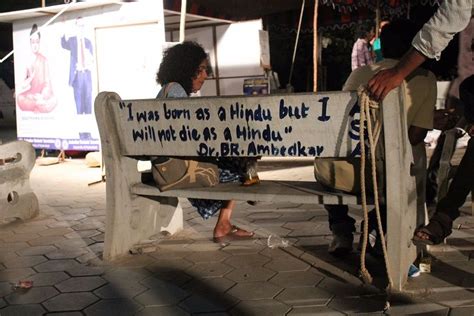 "I was born as a Hindu but I
will not die as a Hindu"
Dr. BR. Ambedkar